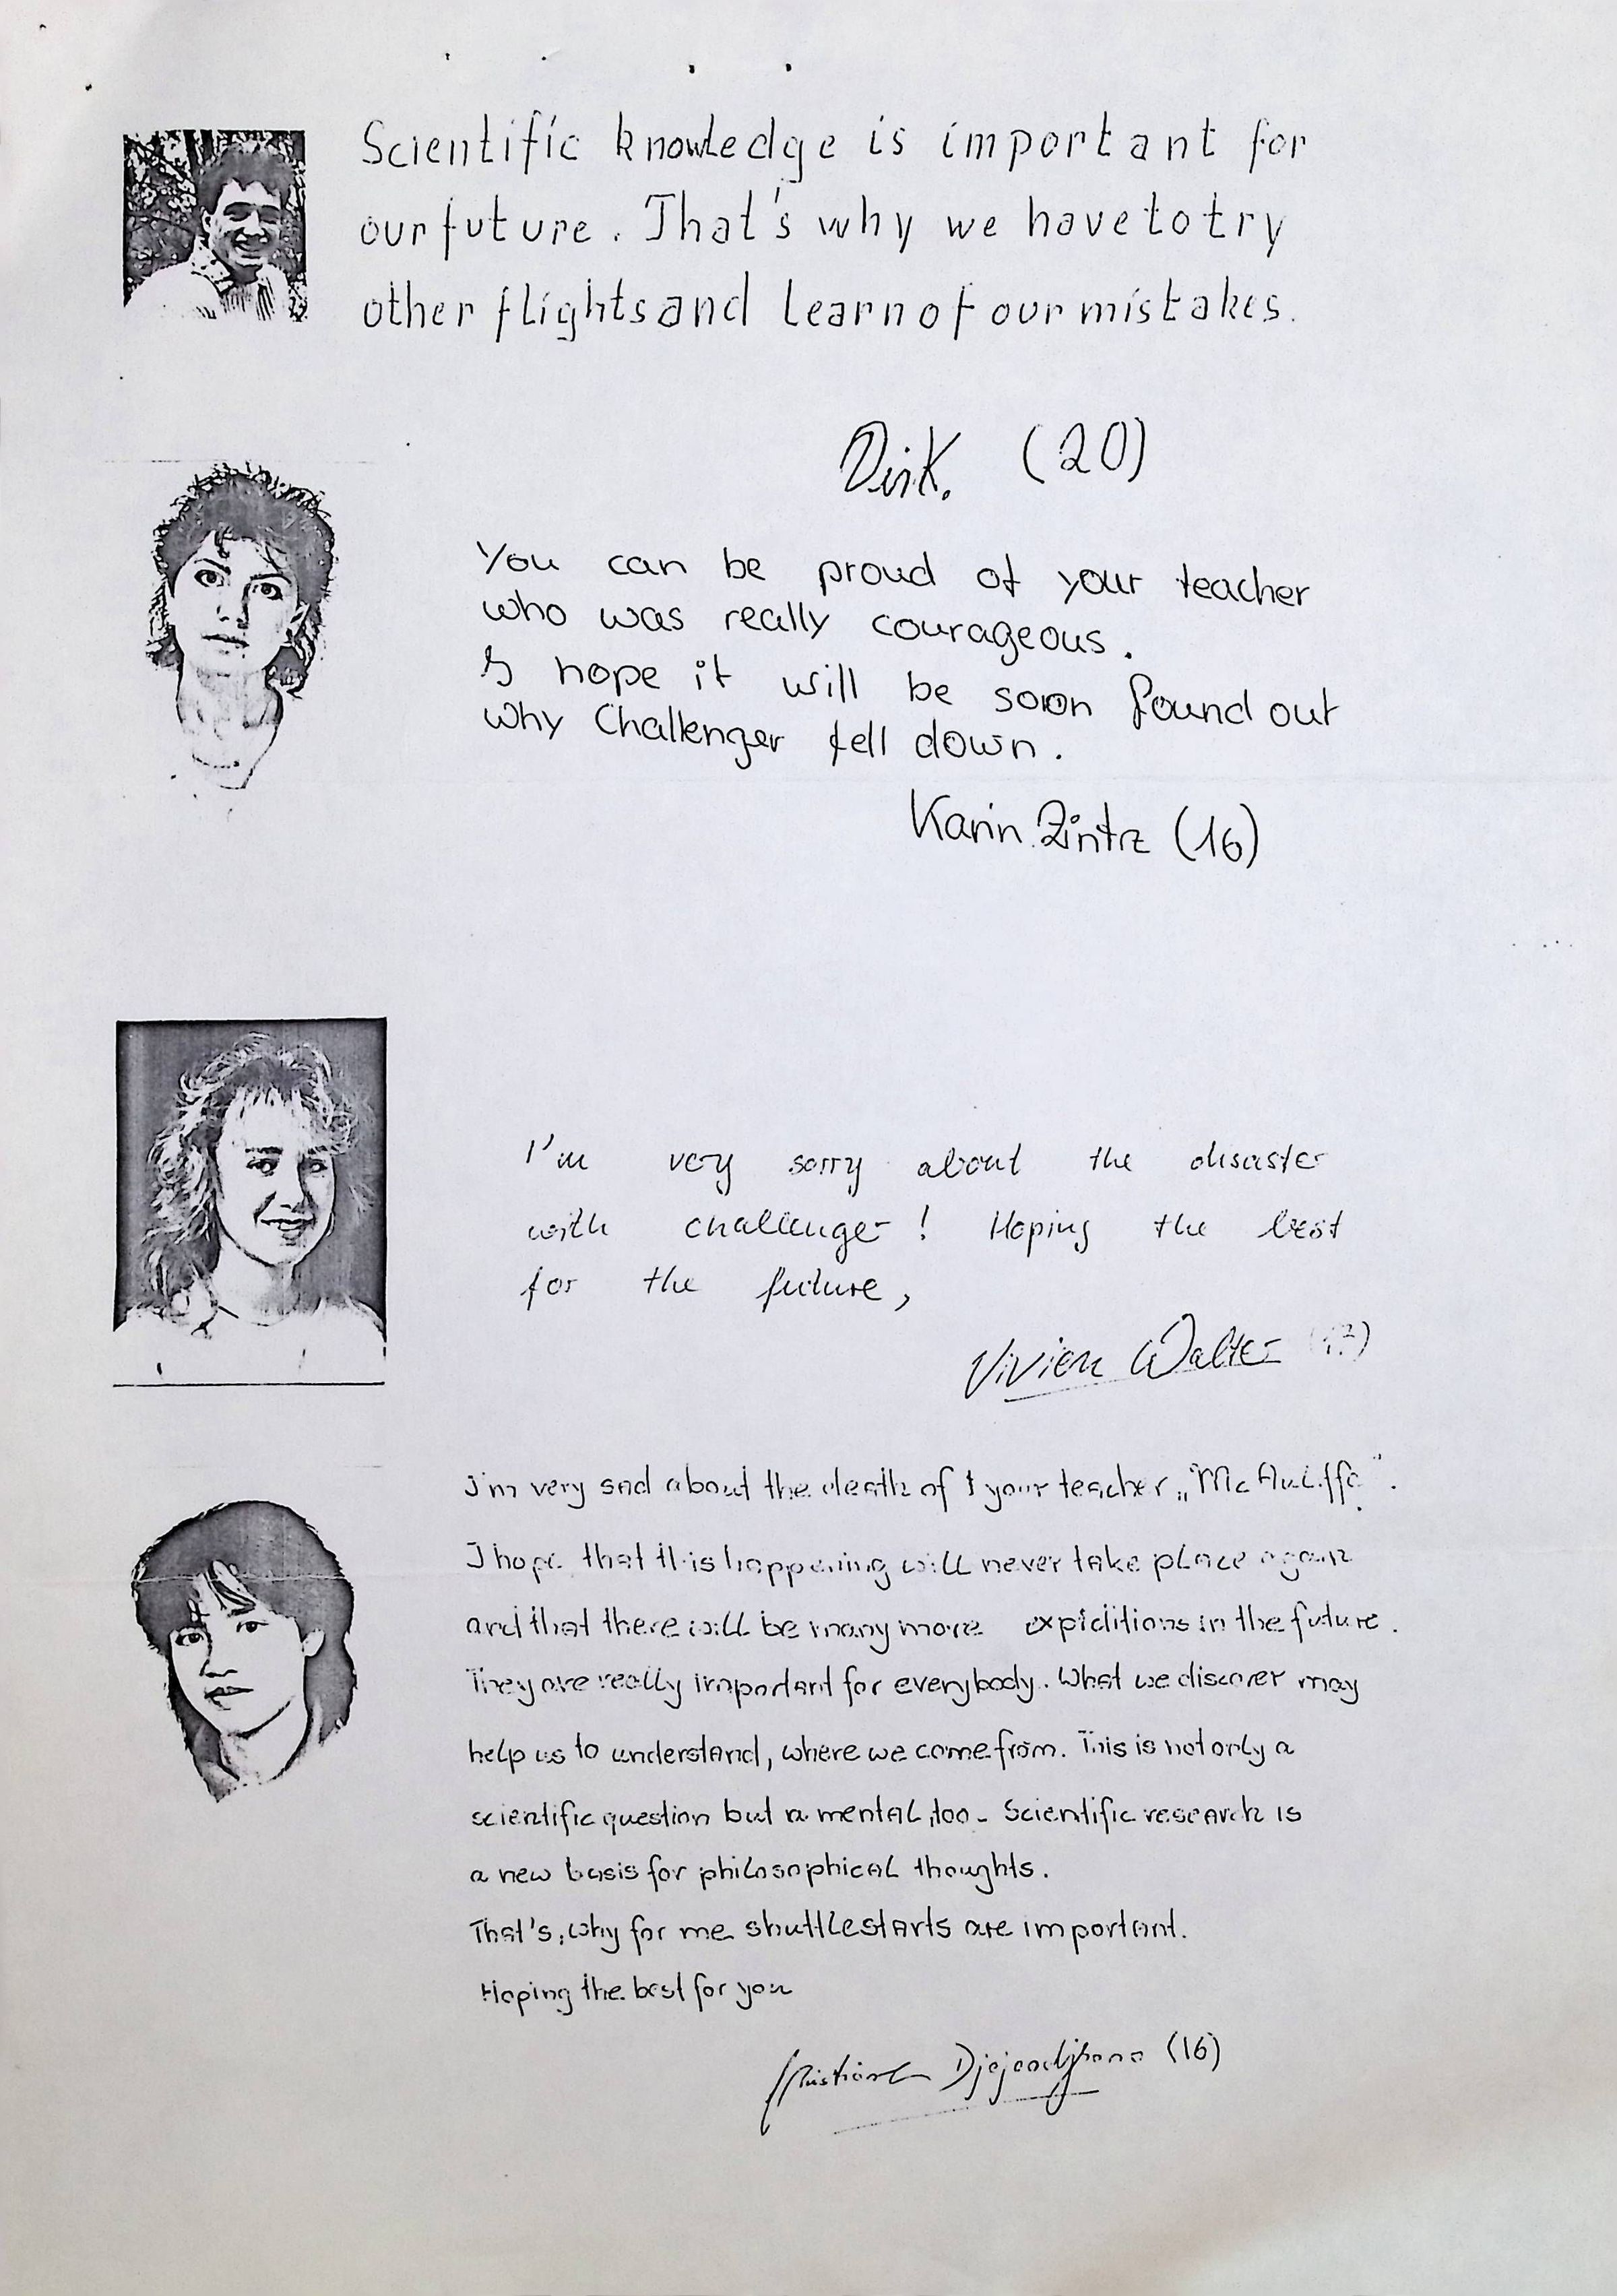 Scientific knowledge is important for
our future. That's why we have to try
other flights and learn of our mistakes.
Dirk. (20)
You can be proud of your teacher
who was really courageous.
I hope it will be soon found out
why Challenger fell down.
Karin Zintz (16)
I'm very sorry about the disaster
with challenger! Hoping the best
for the future,
Vivien Walter
I'm very sad about the death of your teacher „Mc Auliffe".
I hope that this happening will never take place again
and that there will be many more expiditions in the future.
They are really important for everybody. What we discover may
help us to understand, where we come from. This is not only a
scientific question but a mental, too. Scientific research is
a new basis for philosophical thoughts.
That's, why for me shuttlestarts are important.
Hoping the best for you
(16)